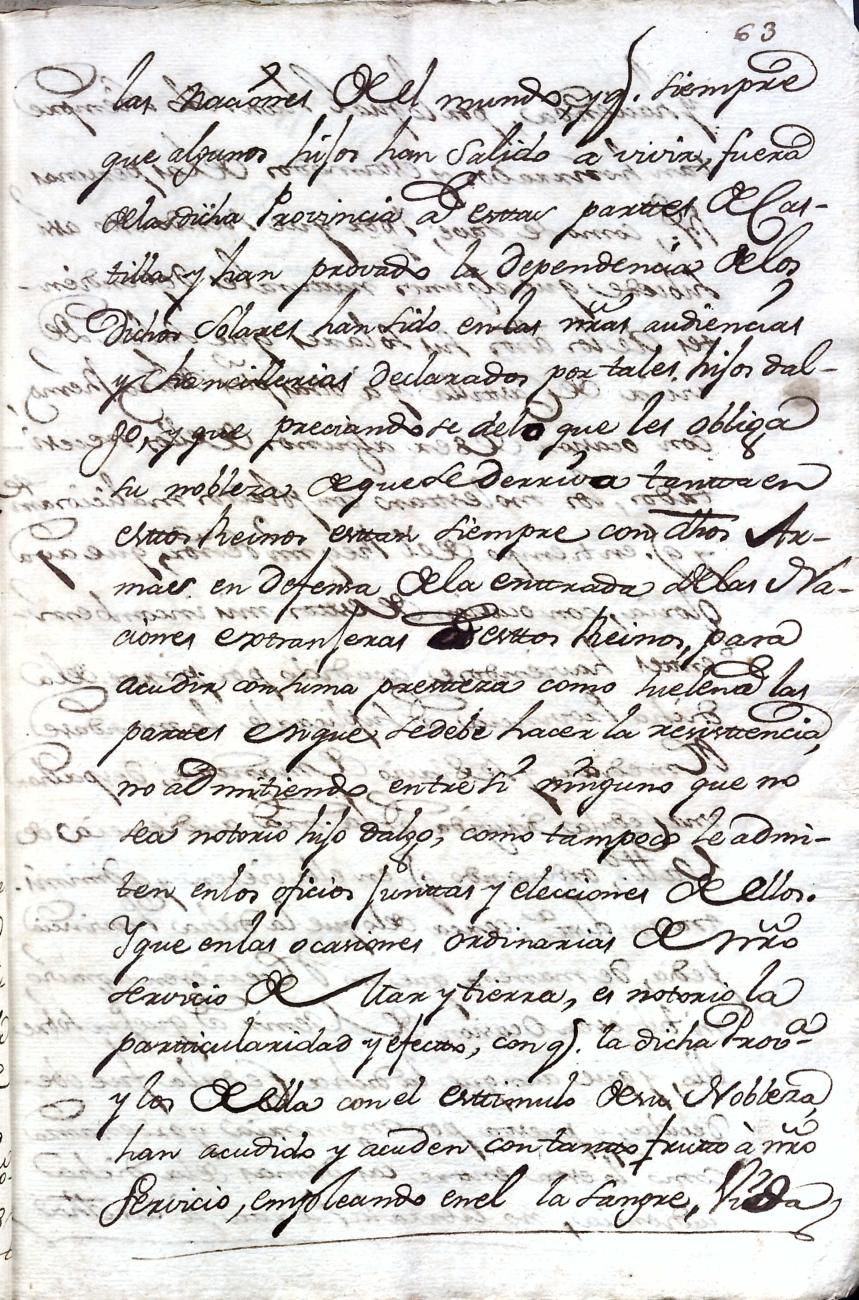 63
las Naciónes de el mundo, y q.e siempre
que algunos hijos han Salido a vivir, fuera
dela dicha Provincia ad esttas parttes de Cas-
tilla y han provado la dependencia de los
Dichos Solares han sido en las nr̃as audiencias
y Chancillerias Declarados por tales hijos dal-
go, y que preciandose delo que les obliga
su nobleza de que se Derriva tantta en
esttos Reinos esttan siempre con dhos Ar-
mas en Defensa de la enttrada de las Na-
ciónes extranjeras de esttos Reinos, para
acudir con suma presteza como suelen ad las
parttes en que se debe hacer la resisttencia,
no admitiendo entre sí ninguno que no
sea notorio hijo dalgo, como tampoco se admi-
ten en los oficios Junttas y elecciones de ellos.
Y que en las ocasiones ordinarias de nr̃o
servicio de Mar y tierra, es notorio la
partticularidad y efectto, con q.e la dicha Prov.a
y los de ella con el esttimulo de su Nobleza,
han acudido y acuden con tantto frutto à nr̃o
Servicio, empleando en el la sangre, Vida